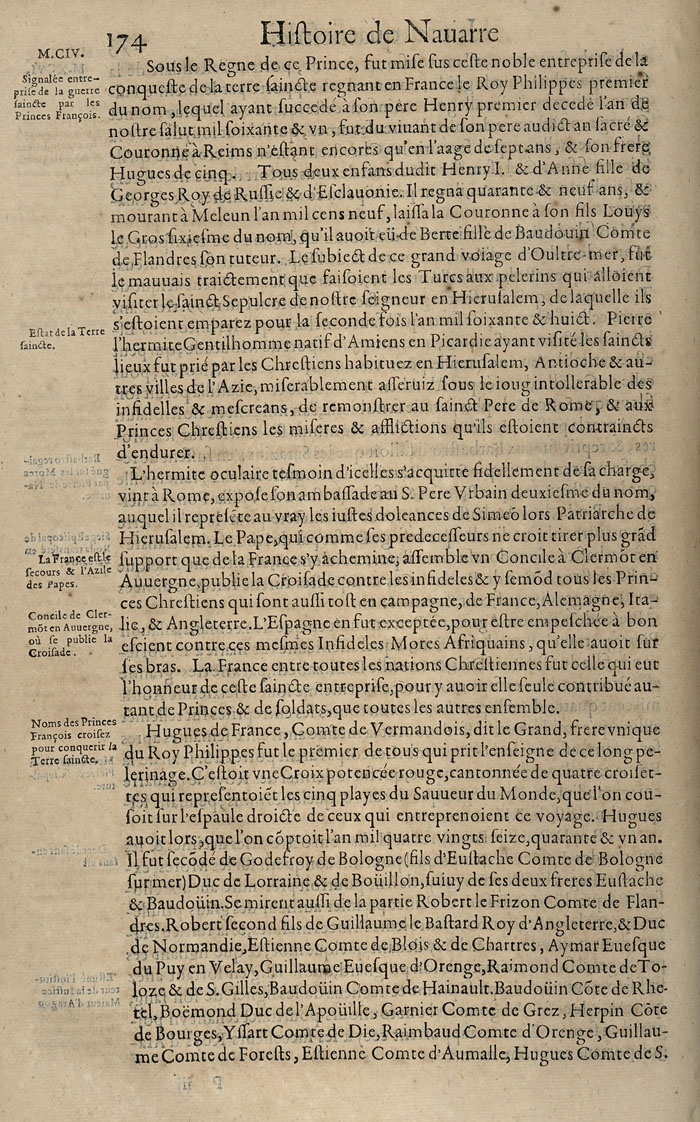 174 Histoire de Nauarre
M.CIV.
Signalée entre-
prise de la guerre
saincte par les
Princes François.
Sous le Regne de ce Prince, fut mise sus ceste noble entreprise de la
conqueste de la terre saincte regnant en France le Roy Philippes premier
du nom, lequel ayant succedé à son pere Henry premier decedé l'an de
nostre salut mil soixante & vn, fut du viuant de son pere audict an sacré &
Couronné à Reims n'estant encores qu'en l'aage de sept ans, & son frere
Hugues de cinq. Tous deux enfans dudit Henry I. & d'Anne fille de
Georges Roy de Russie & d'Esclauonie. Il regna quarante & neuf ans, &
mourant à Meleun l'an mil cens neuf, laissa la Couronne à son fils Louys
le Gros sixiesme du nom, qu'il auoit eü de Berte fille de Baudoüin Comte
de Flandres son tuteur. Le subiect de ce grand voiage d'Oultre-mer, fut
le mauuais traictement que faisoient les Turcs aux pelerins qui alloient
visiter le sainct Sepulcre de nostre seigneur en Hierusalem, de laquelle ils
s'estoient emparez pour la seconde fois l'an mil soixante & huict. Pierre
Estat de la Terre
saincte.
l'hermite Gentilhomme natif d'Amiens en Picardie ayant visité les saincts
lieux fut prié par les Chrestiens habituez en Hierusalem, Antioche & au-
tres villes de l'Azie, miserablement asseruiz sous le ioug intollerable des
infidelles & mescreans, de remonstrer au sainct Pere de Rome, & aux
Princes Chrestiens les miseres & afflictions qu'ils estoient contraincts
d'endurer.
L'hermite oculaire tesmoin d'icelles s'acquitte fidellement de sa charge,
vint à Rome, expose son ambassade au S. Pere Vrbain deuxiesme du nom,
auquel il represẽte au vray les iustes doleances de Simeõ lors Patriarche de
Hierusalem. Le Pape, qui comme ses predecesseurs ne croit tirer plus grãd
La France est le
secours & l'Azile
des Papes.
support que de la France s'y achemine, assemble vn Concile à Clermõt en
Auuergne, publie la Croisade contre les infideles & y semõd tous les Prin-
ces Chrestiens qui sont aussi tost en campagne, de France, Alemagne, Ita-
Concile de Cler-
mõt en Auuergne,
où se publie la
Croisade.
lie, & Angleterre. L'Espagne en fut exceptée, pour estre empeschée à bon
escient contre ces mesmes Infideles Mores Afriquains, qu'elle auoit sur
ses bras. La France entre toutes les nations Chrestiennes fut celle qui eut
l'honneur de ceste saincte entreprise, pour y auoir elle seule contribué au-
tant de Princes & de soldats, que toutes les autres ensemble.
Noms des Princes
François croisez
pour conquerir la
Terre saincte.
Hugues de France, Comte de Vermandois, dit le Grand, frere vnique
du Roy Philippes fut le premier de tous qui prit l'enseigne de ce long pe-
lerinage. C'estoit vne Croix potencée rouge, cantonnée de quatre croiset-
tes qui representoiẽt les cinq playes du Sauueur du Monde, que l'on cou-
soit sur l'espaule droicte de ceux qui entreprenoient ce voyage. Hugues
auoit lors, que l'on cõptoit l'an mil quatre vingts seize, quarante & vn an.
Il fut secõdé de Godefroy de Bologne (fils d'Eustache Comte de Bologne
sur mer) Duc de Lorraine & de Boüillon, suiuy de ses deux freres Eustache
& Baudoüin. Se mirent aussi de la partie Robert le Frizon Comte de Flan-
dres. Robert second fils de Guillaume le Bastard Roy d'Angleterre, & Duc
de Normandie, Estienne Comte de Blois & de Chartres, Aymar Euesque
du Puy en Velay, Guillaume Euesque d'Orenge, Raimond Comte de To-
loze & de S. Gilles, Baudoüin Comte de Hainault. Baudoüin Cõte de Rhe-
tel, Boëmond Duc de l'Apoüille, Garnier Comte de Grez, Herpin Cõte
de Bourges, Yssart Comte de Die, Raimbaud Comte d'Orenge, Guillau-
me Comte de Forests, Estienne Comte d'Aumalle, Hugues Comte de S.